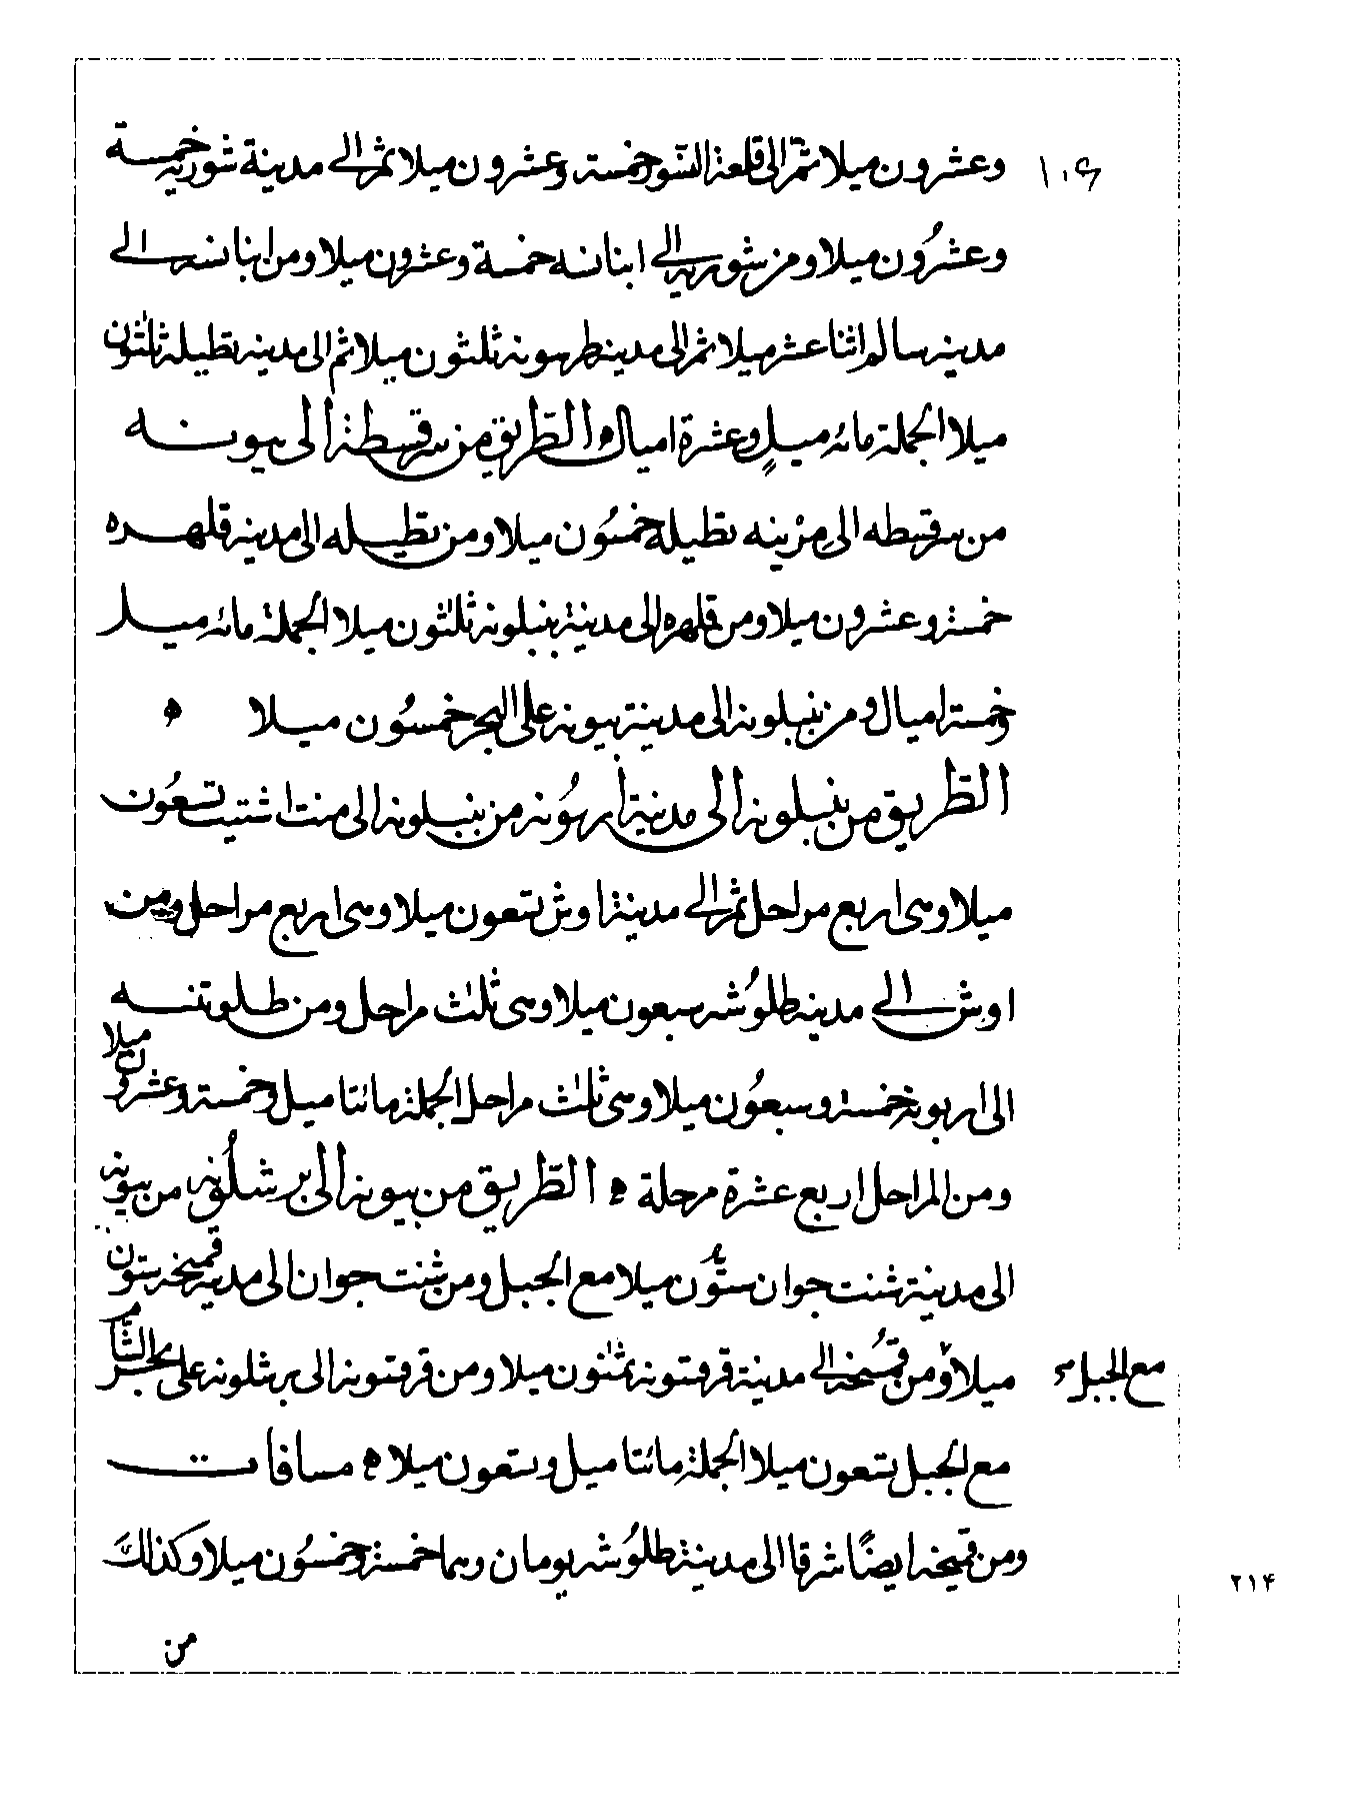 وعشرون ميلا ثم الى قلعة النسور خمسة وعشرون ميلا ثم الى مدينة شوريه خمسة
وعشرُون ميلا ومن شوريه الى ابنانسه خمسة وعشرون ميلا ومن ابنانسه الى
مدينه سالم اثنا عشر ميلا ثم الى مدينه طرسونه ثلثون ميلا ثم الى مدينه تطيله ثلثون
ميلا الجملة مائه ميلٍ وعشرة اميال ه الطّريق من سرقسطة الى بيونه
من سرقسطه الى مدينه تطيله خمسُون ميلا ومن تطيله الى مدينه قلهره
خمسة وعشرون ميلا ومن قلهره الى مدينة بنبلونه ثلثون ميلا الجملة مائه ميل
وخمسة اميال ومن بنبلونه الى مدينة بيونه على البحر خمسُون ميلا ه
الطّريق من بنبلونه الى مدينة اربُونه من بنبلونه الى منت اشتيت تسعُون
ميلا وهى اربع مراحل ثم الى مدينة اوش تسعون ميلا وهى اربع مراحل ومن
اوش الى مدينه طلوُشه سبعون ميلا وهى ثلث مراحل ومن طلوشه
الى اربونه خمسة وسبعُون ميلا وهى ثلث مراحل الجملة مائتا ميل وخمسة وعشرون ميلا
ومن المراحل اربع عشرة مرحلة ه الطّريق من بيونه الى برشلُونه من بيونه
الى مدينة شنت جوان ستّون ميلا مع الجبل ومن شنت جوان الى مدينة قمنجه ستون
ميلا ومن قمنجه الى مدينة قرقشونه ثمٰنون ميلا ومن قرقشونه الى برشلونه على بحر الشام
مع الجبل
مع الجبل تسعون ميلا الجملة مائتا ميل وتسعون ميلا ه مسافات
ومن قمنجه ايضًا شرقا الى مدينة طلوُشه يومان وهما خمسة وخمسُون ميلا وكذالكَ
من
٢١۴